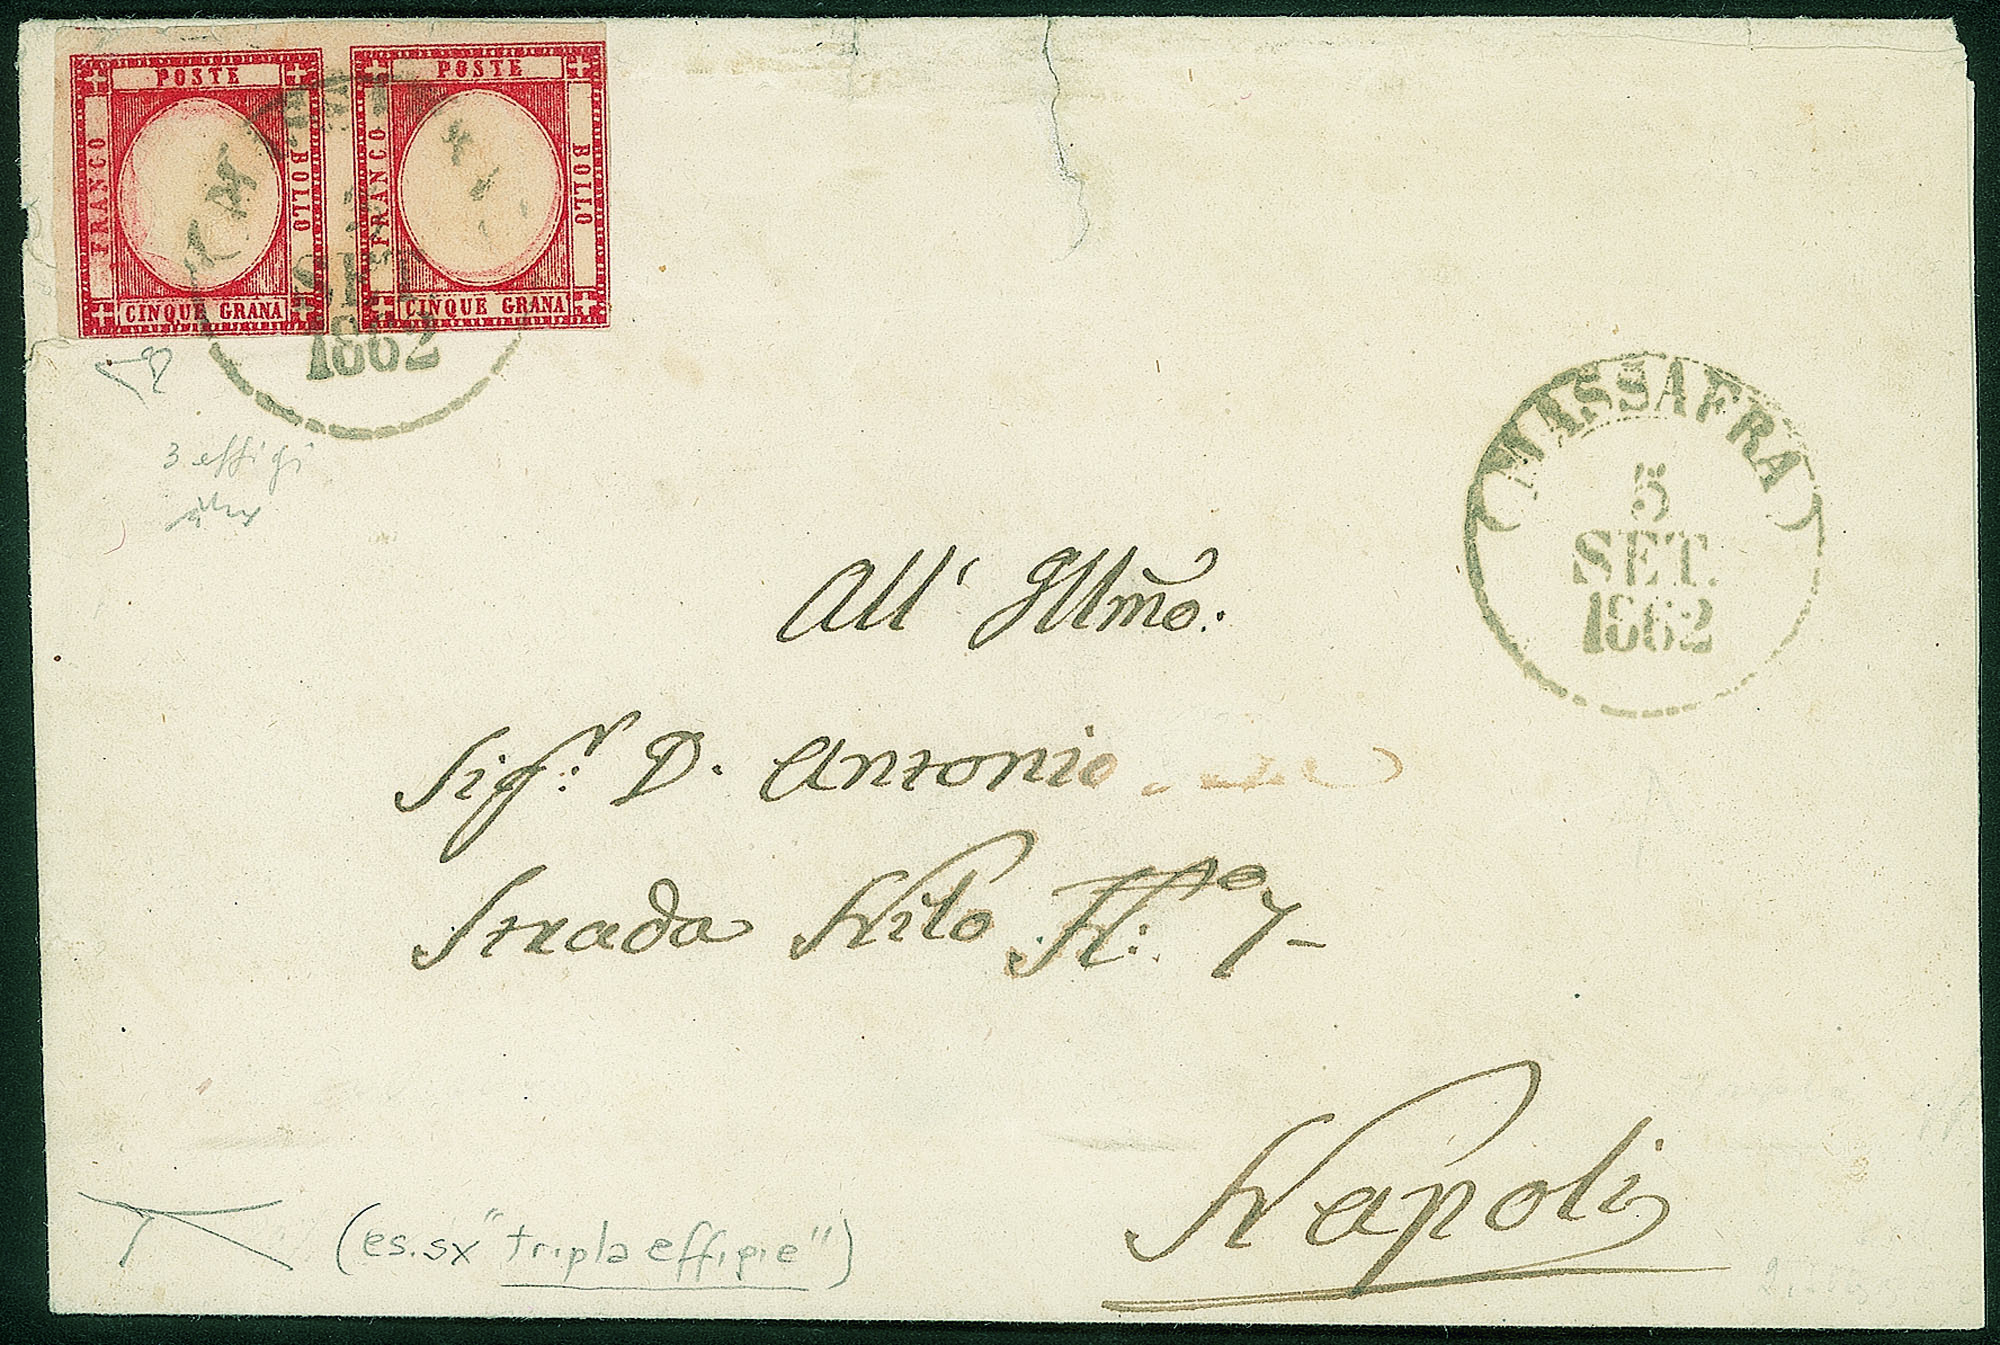 POSTE
FRANCO
BOLLO
CINQUE GRANA
POSTE
FRANCO
BOLLO
CINQUE GRANA
SET
1862
MASSAFRA
5
SET.
1862
3 effigi
All' Illmo:
Sigr: D. Antonio
Strada Nilo No: 7-
Napoli
(es. sx "tripla effigie")